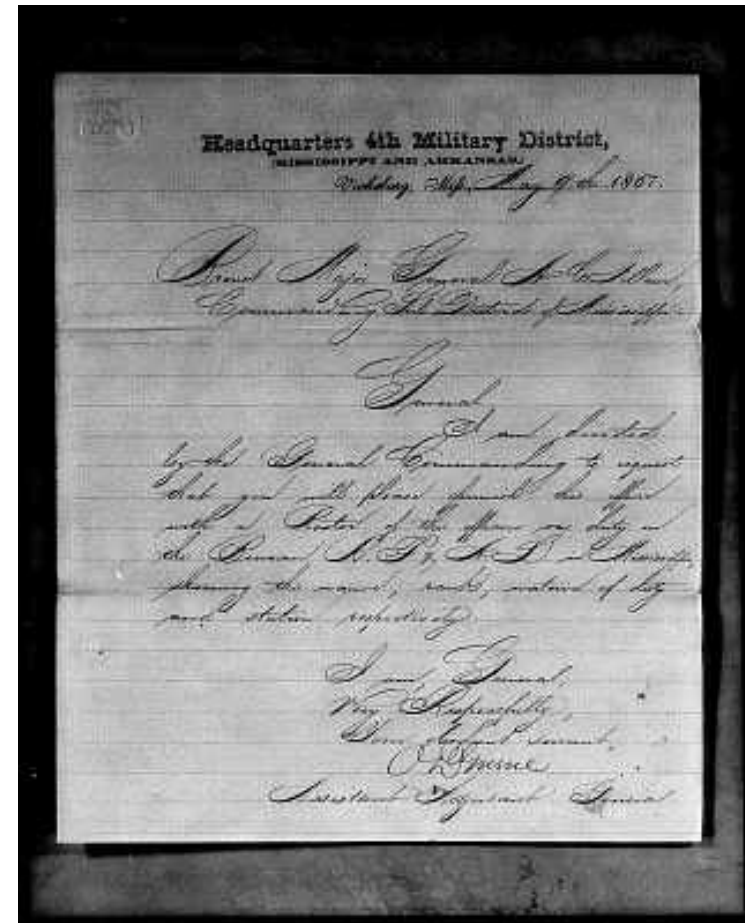 Headquarters 4th Military District,
(MISSISSIPPI AND ARKANSAS,)
Vicksburg, Miss., May 9th 1867.
Brevet Major General A. C. Gillem,
Commanding Sub District of Mississippi.
General
I am directed
by the General Commanding to request
that you will please furnish this office
with a Roster of the officers on duty in
the Bureau R. F. & A. L. in Mississippi,
showing the names, rank, nature of duty
and station respectively.
I am, General,
Very Respectfully,
Your obedient servant,
O D Greene
Assistant Adjutant General